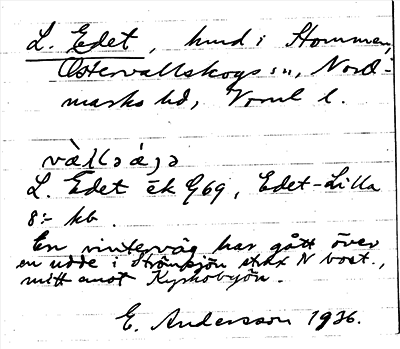 L. Edet, hmd i Stommen,
Östervallskogs sn, Nord-
marks hd, Vrml l.
L. Edet ek G69, Edet-Lilla
8:- kb.
En vinterväg har gått över
en udde i Strömsjön strax N bost.,
mitt emot
E. Andersson 1936.